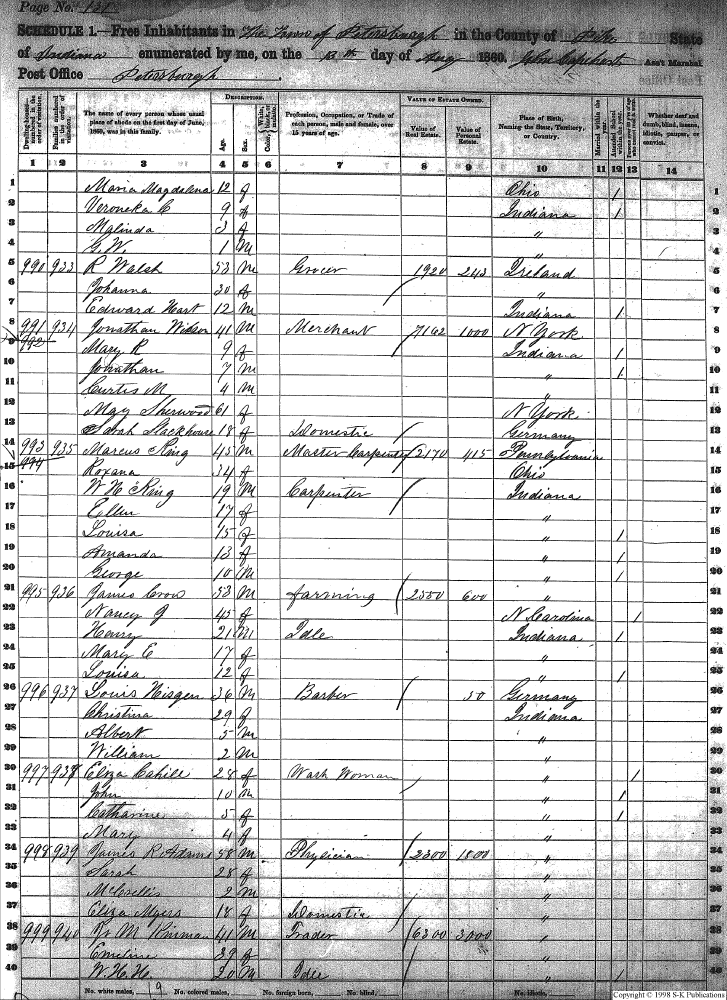 Page No. 131
SCHEDULE 1.—Free Inhabitants in The Town of Petersburgh in the County of Pike State
of Indiana enumerated by me, on the 13th day of Aug 1860. Ass't Marshal
Post Office Petersburgh
Dwelling-houses—numbered in the order of visitation.
Families numbered in the order of visitation.
The name of every person whose usual place of abode on the first day of June, 1860, was in this family.
DESCRIPTION.
Age.
Sex.
Color,
Profession, Occupation, or Trade of each person, male and female, over 15 years of age.
VALUE OF ESTATE OWNED.
Value of Real Estate.
Value of Personal Estate.
Place of Birth, Naming the State, Territory, or Country.
Married within the year.
Attended School within the year.
Whether deaf and dumb, blind, insane, idiotic, pauper, or convict.
1 2 3 4 5 6 7 8 9 10 11 12 13 14
1 Maria Magdelena 12 f Ohio / 1
2 Veroneka C 9 f Indiana / 2
3 Malinda 3 f " 3
4 G.W. 1 m " 4
5 990 933 R Walsh 53 m Grocer 1920 243 Ireland 5
6 Johanna 30 f " 6
7 Edward Hart 12 m Indiana / 7
8 991 934 Jonathan Wilson 41 m Merchant 7162 1000 N York 8
9 992 Mary R 9 f Indiana / 9
10 Jonathan 7 m " / 10
11 Curtis M 4 m " 11
12 May Sherwood 61 f N York 12
13 Sarah Slackhouse 18 f Domestic Germany 13
14 993 935 Marcus King 45 m Master Carpenter 2170 415 Pennsylvania 14
15 994 Roxana 34 f Ohio 15
16 W H King 19 m Carpenter Indiana 16
17 Ellen 17 f " 17
18 Louisa 15 f " / 18
19 Amanda 13 f " / 19
20 George 10 m " / 20
21 995 936 James Crow 53 m farming 2550 600 " 21
22 Nancy J 45 f N Carolina / 22
23 Henry 21 m Idle Indiana / 23
24 Mary E 17 f " 24
25 Louisa 12 f " / 25
26 996 937 Louis Hisgen 36 m Barber 50 Germany 26
27 Christina 29 f Indiana 27
28 Albert 5 m " 28
29 William 2 m " 29
30 997 938 Eliza Cahill 28 f Wash Woman " / 30
31 John 10 m " / 31
32 Catharine 5 f " / 32
33 Mary 4 f " 33
34 998 939 James R Adams 58 m Physician 2300 1800 " 34
35 Sarah 28 f " 35
36 McCrellis 2 m " 36
37 Eliza Myers 18 f Domestic " 37
38 999 940 M Kinman 41 m Trader 6300 3000 " 38
39 Emeline 39 f " 39
40 W. H. H. 20 m Idle " / 40
No. white males, 19 No. colored males, No. foreign born, No. blind, No. idiotic,
Copyright © 1998 S-K Publications